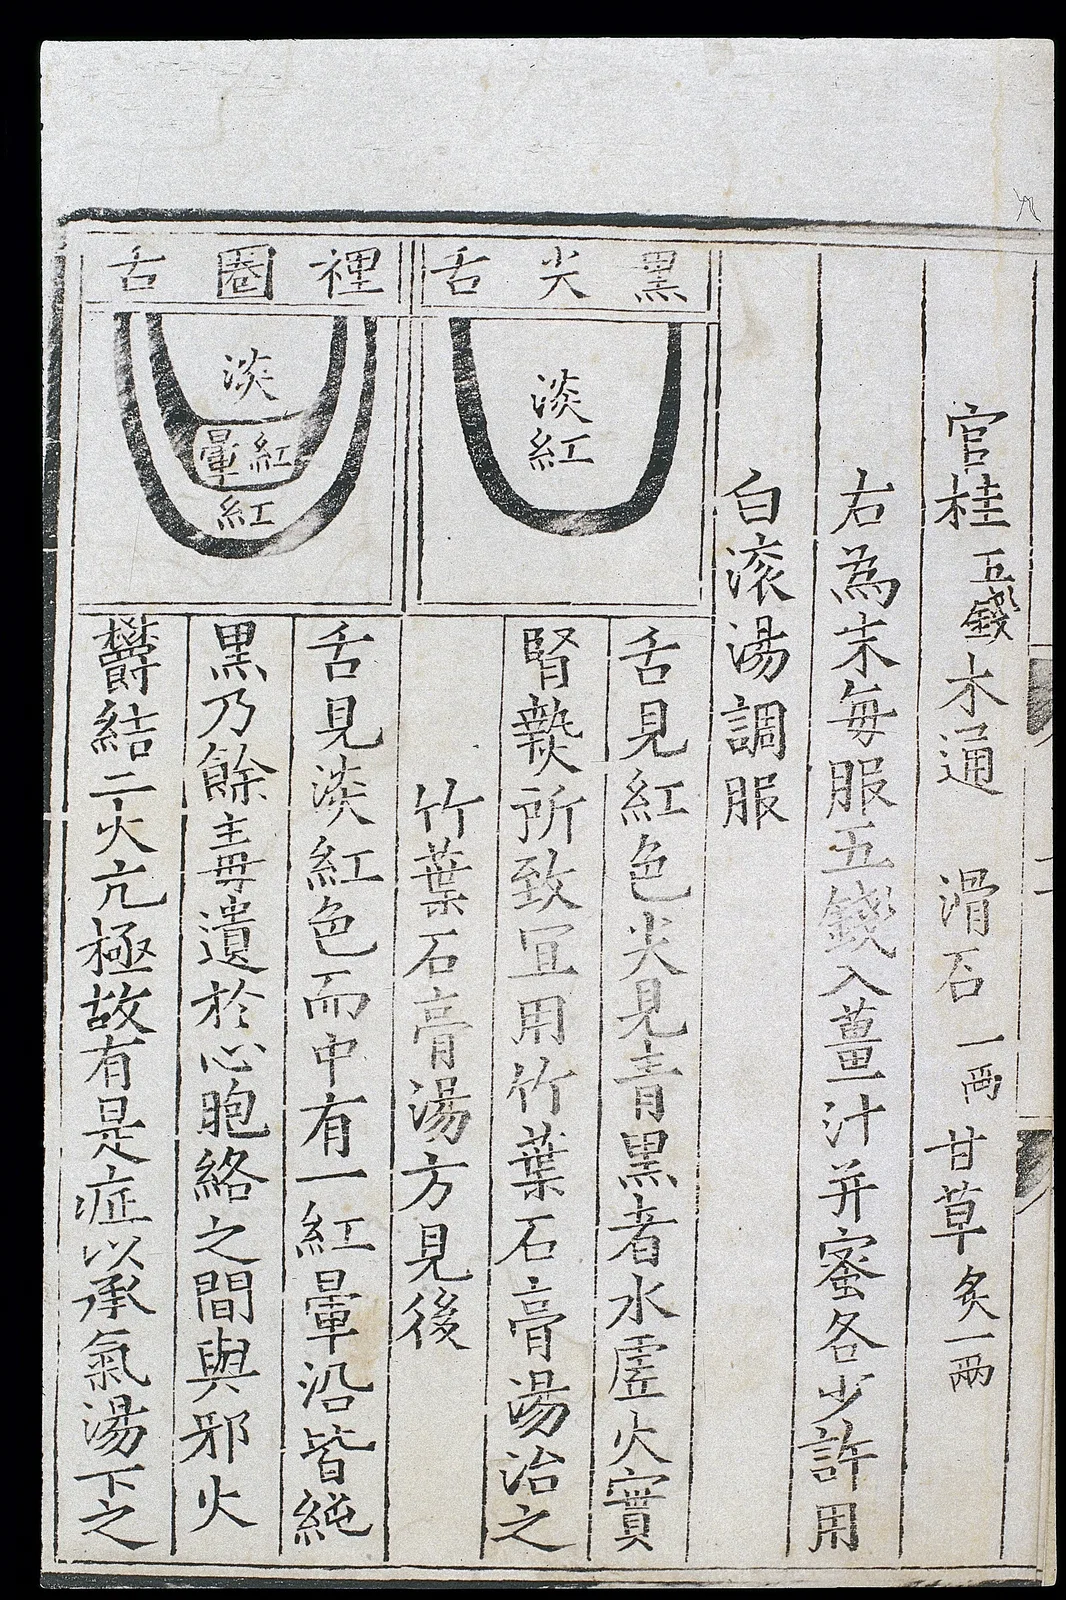 官桂五錢木通 滑石一兩甘草炙一兩
右為末每服五錢入薑汁并蜜各少許用
白滚湯調服
黑尖舌
淡紅
舌見紅色尖見青黑者水虛火實
腎熱所致宜用竹葉石膏湯治之
竹葉石膏湯方見後
裡圈舌
淡
紅暈
紅
舌見淡紅色而中有一紅暈沿皆純
黑乃餘毒遺於心胞絡之間與邪火
欝結二火亢極故有是症以承氣湯下之